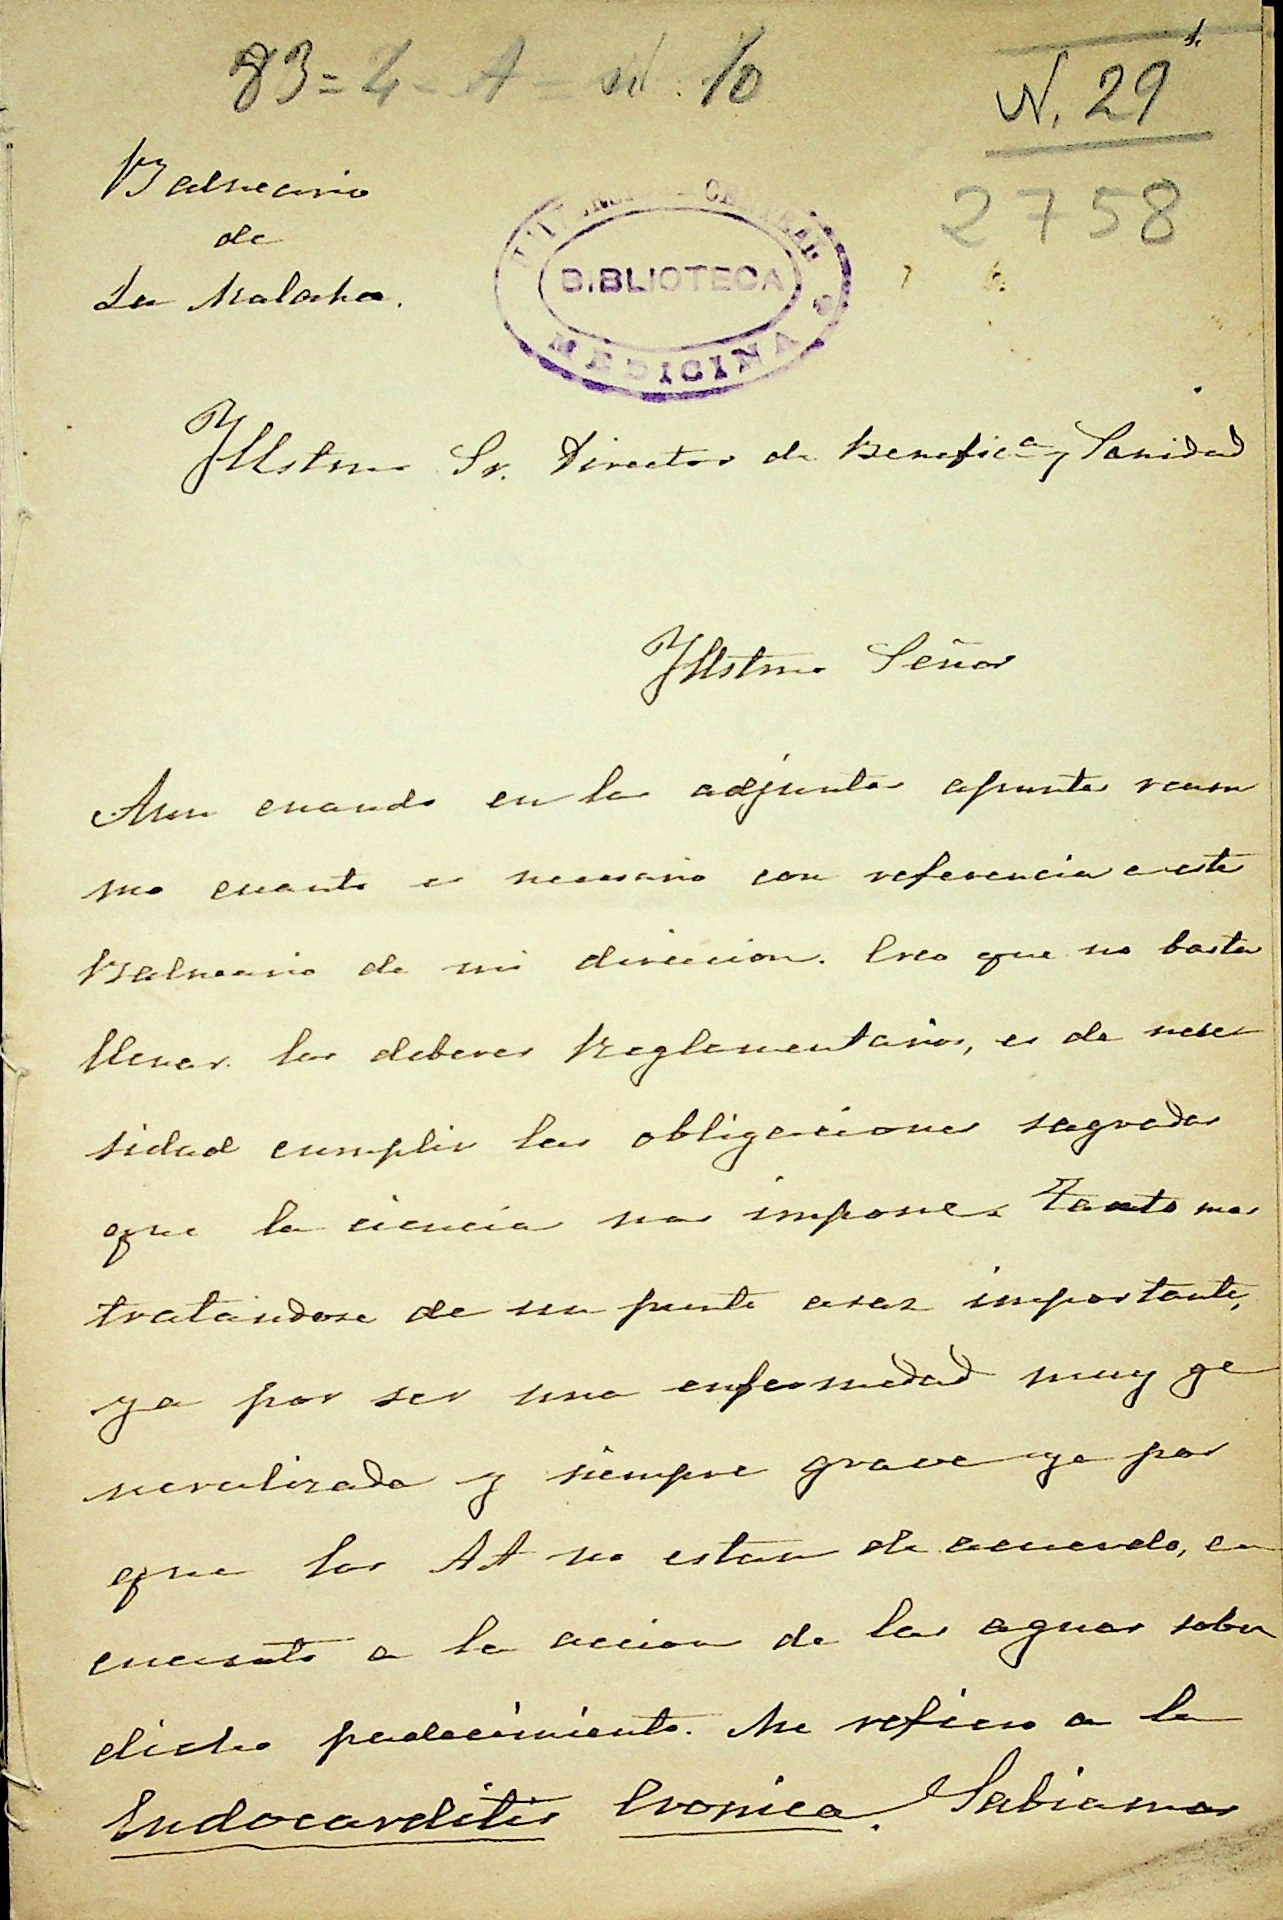 83=4-A=N. 10
N. 29
2758
Balneario
de
La Malaha.
BIBLIOTECA
MEDICINA
Yllstmo Sr. Director de Benefic.ª y Sanidad
Yllstmo Señor
Aun cuando en los adjuntos apuntes resu
mo cuanto es necesario con referencia a este
Balneario de mi direccion. Creo que no basta
llenar los deberes Reglamentarios, es de nece
sidad cumplir las obligaciones sagradas
que la ciencia nos impone. Tanto mas
tratandose de un punto asaz importante,
ya por ser una enfermedad muy ge
neralizada y siempre grave ya por
que los AA no estan de acuerdo, en
cuanto a la accion de las aguas sobre
dicho padecimiento. Me refiero a la
Endocarditis Cronica. Sabiamos